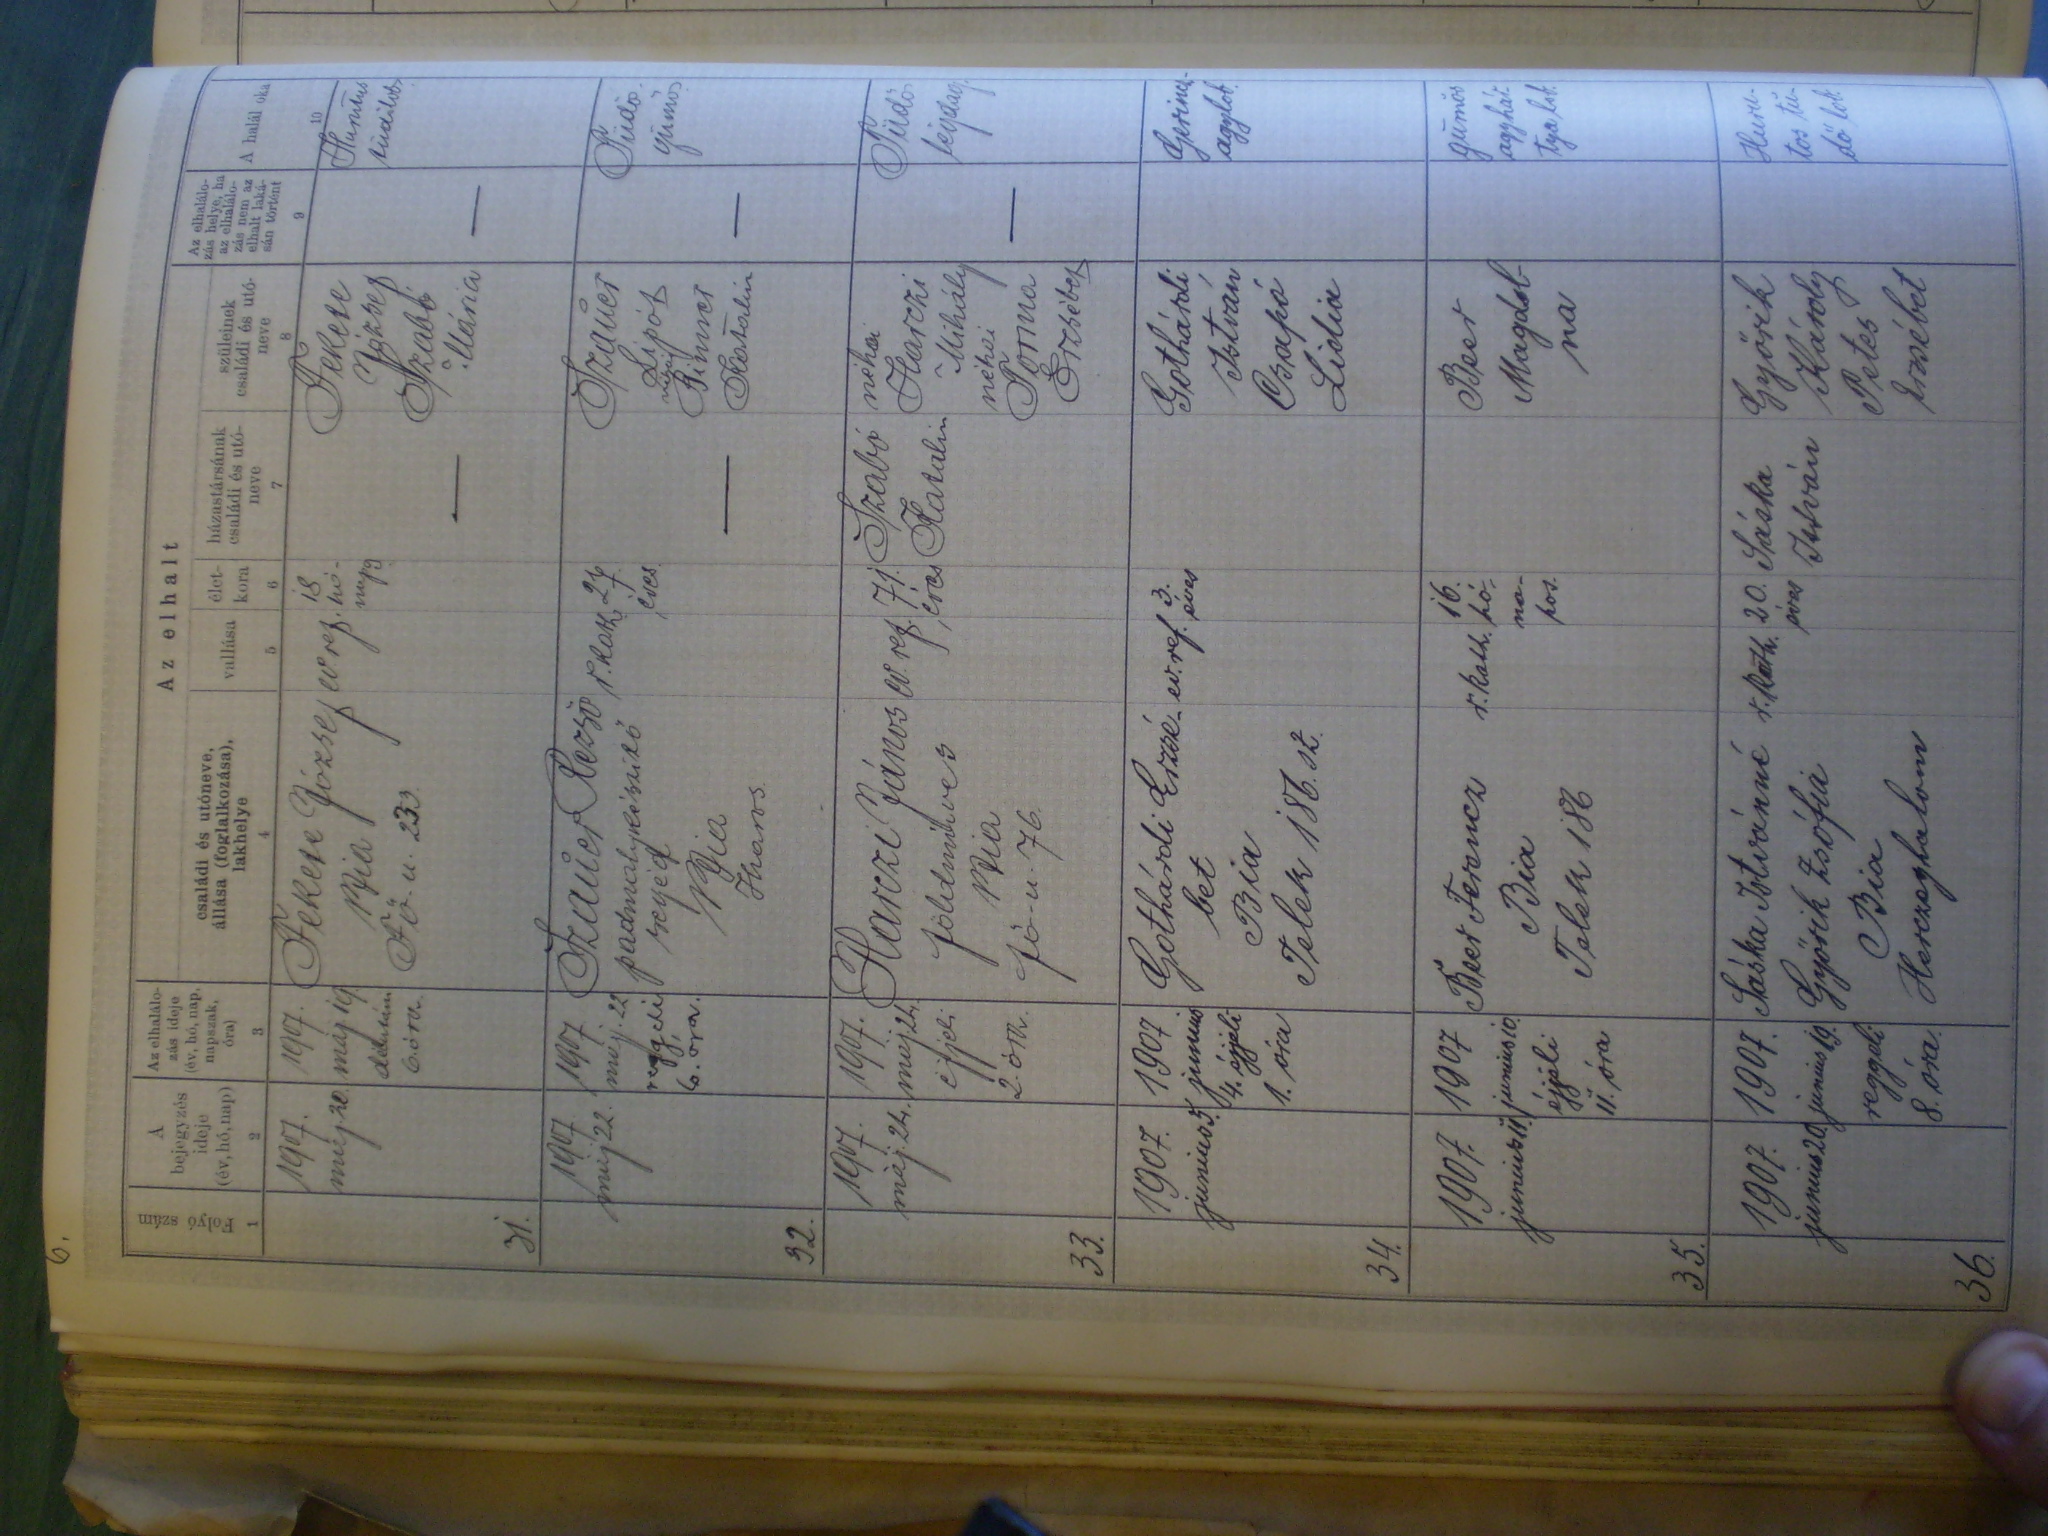 6.
Folyó szám
1
A bejegyzés ideje (év, hó, nap)
2
Az elhalálo-
zás ideje
(év, hó, nap,
napszak,
óra)
3
Az elhalt
családi és utóneve,
állása (foglalkozása),
lakhelye
4
vallása
5
élet-
kora
6
házastársának
családi és utó-
neve
7
szüleinek
családi és utó-
neve
8
Az elhalálo-
zás helye, ha
az elhalálo-
zás nem az
elhalt laká-
sán történt
9
A halál oka
10
31.
1907.
máj. 20.
1907.
máj 19.
délután
6. óra.
Fekete József
Bia
Fő-u. 233.
ev ref.
18
hó-
napo
—
Fekete
József
Szabó
Mária
—
32.
1907.
máj 22.
1907.
máj. 22
reggeli
6. óra.
Szauer Rezső
Bia
r. kath.
27.
éves.
—
Szauer
Lipót
Katalin
—
Tüdő-
gümős
33.
1907.
máj. 24.
1907.
máj. 24.
éjjeli
2. óra.
Harczi János
földmives
Bia
fő-u. 76.
ev ref.
71.
éves
Szabó
Katalin
néhai
Harczi
Mihály
néhai
Erzsébet
—
Tüdő-
34.
1907.
junius 5.
1907
junius
4. éjjeli
1. óra
Gothárdi Erzsé-
bet
Bia
Telek 186. sz.
ev. ref.
3.
éves
Gothárdi
István
Csapó
Lidia
agylob.
35.
1907.
junius 11.
1907
junius 10.
éjjeli
11. óra
Beer Ferencz
Bia
Telek 186
r. kath.
16.
hó-
na-
pos.
Beer
Magdol-
na
gümős
agyhár-
tyalob.
36.
1907.
junius 20.
1907.
junius 19.
reggeli
8. óra.
Sáska Istvánné
Győrik Zsófia
Bia
Herczeghalom
r. kath.
20.
éves
Sáska
István
Győrik
Károly
Petes
Erzsébet
Huru-
tos tü-
dőlob.